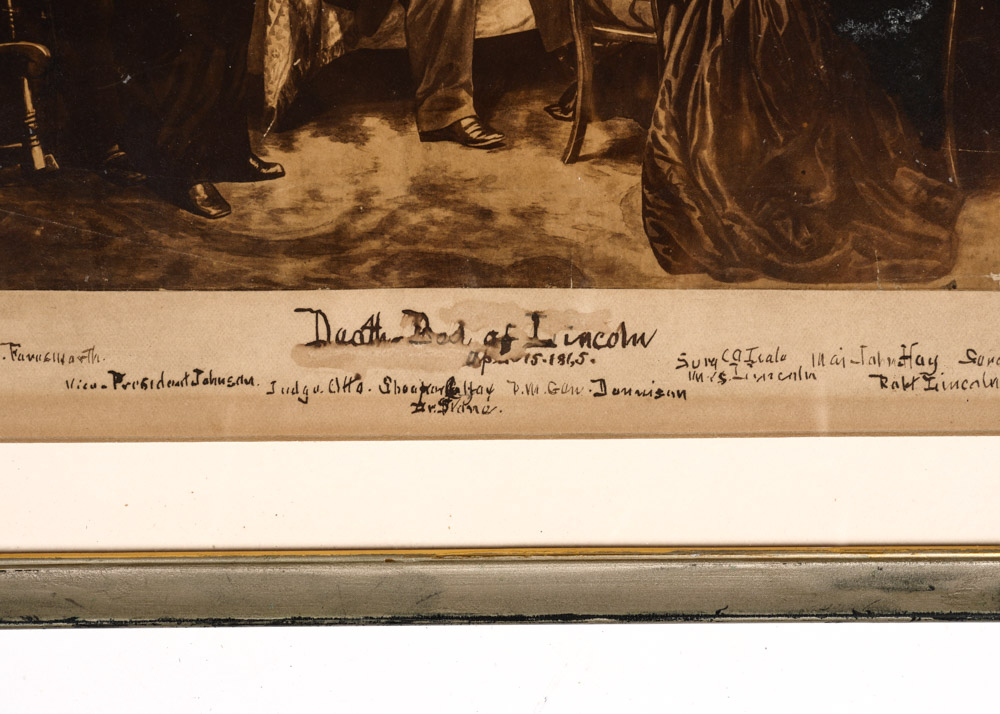 Death-Bed of Lincoln
Apr. 15-1865.
. Farnsworth.
Vice-President Johnson.
Judge Otto. Shoaparl Hay P.M. Gen. Dennison
Dr. Stone.
Surg Maj. John Hay
Mrs. Lincoln Robt Lincoln